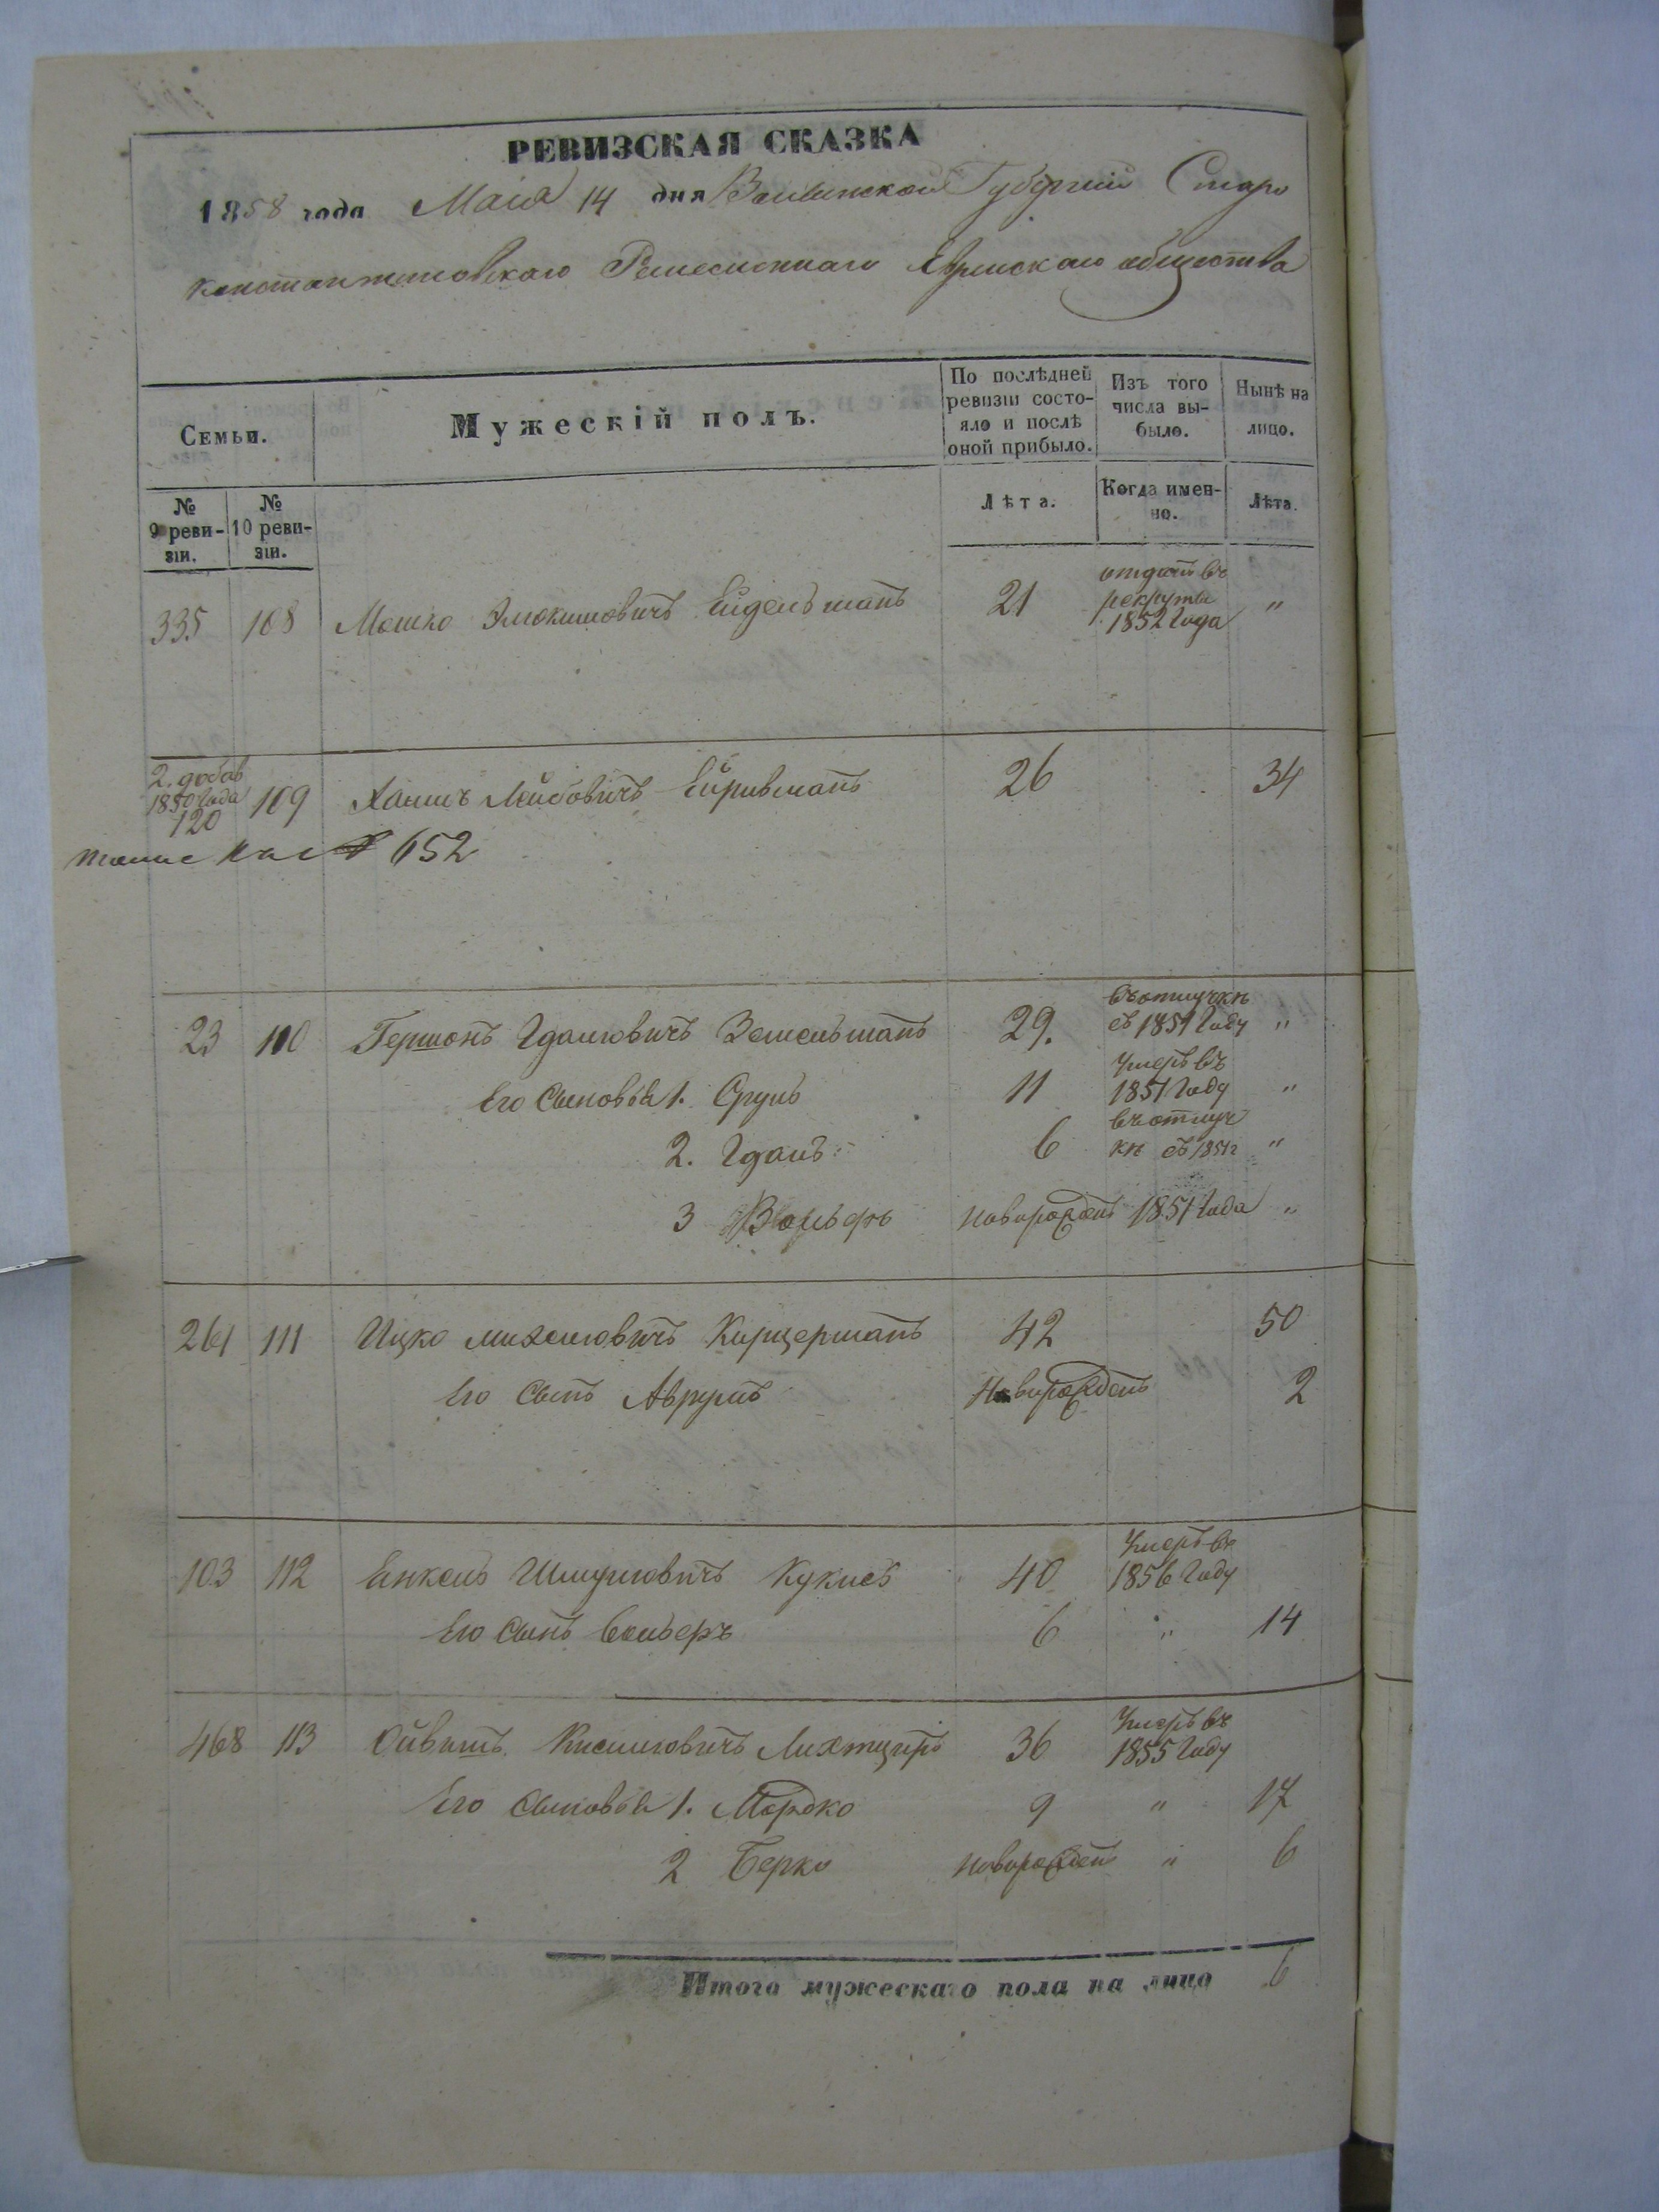 РЕВИЗСКАЯ СКАЗКА
1858 года Маія 14 дня Волынской Губерніи Старо
константиновскаго Ремесленнаго Еврейскаго общества
Семьи.
Мужескій полъ.
По послѣдней ревизіи состояло и послѣ оной прибыло.
Изъ того числа выбыло.
Нынѣ на лицо.
№ 9 ревизіи.
№ 10 ревизіи.
Лѣта.
Когда именно.
Лѣта.
335 108 Мошко Эльокимовичъ Ейдельманъ 21 отданъ въ рекруты 1852 Года "
2. добав 1850 Года 120 109 Хаимъ Лейбовичъ 26 34
652
23 110 Гершонъ Гдаловичъ Зельманъ 29. въ отлучкѣ съ 1851 Году "
Его Сыновья 1. Сруль 11 Умеръ въ 1851 Году "
2. Гдаль 6 въ отлучкѣ съ 1851г "
3 Вольфъ новорожденъ 1851 Года "
261 111 Ицко Михелевичъ Кирцерманъ 42 50
Его Сынъ Аврумъ Новорожденъ 2
103 112 Енкель Шмулевичъ Кукисъ 40 Умеръ въ 1856 Году
Его Сынъ 6 " 14
468 113 Ойвишъ Киселевичъ Лихтциръ 36 Умеръ въ 1855 Году
Его Сыновья 1. Мордко 9 " 17
2 Берко новорожден " 6
Итого мужескаго пола на лицо 6